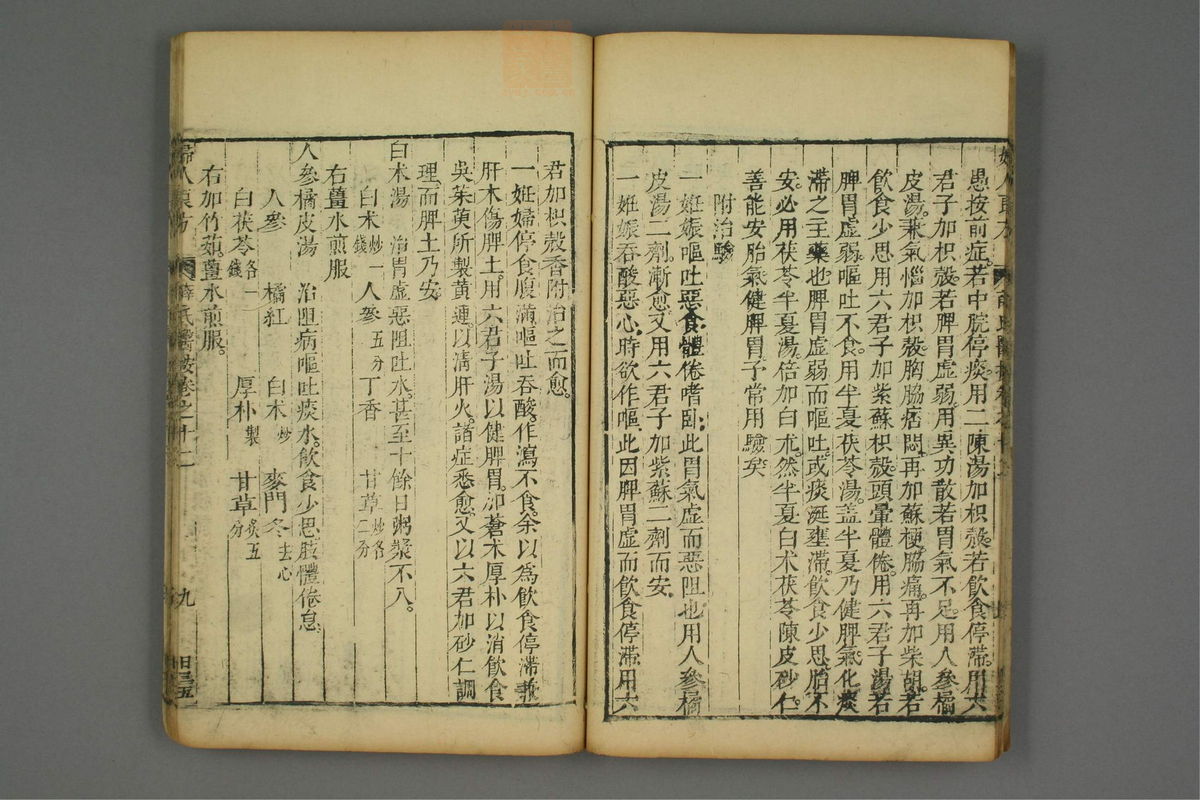 愚按前症若中脘停痰用二陳湯加枳殼若飲食停滯用六
君子加枳殼若脾胃虛弱用異功散若胃氣不足用人參橘
皮湯兼氣惱加枳殼胸脇痞悶再加蘇梗脇痛再加柴胡若
飲食少思用六君子加紫蘇枳殼頭暈體倦用六君子湯若
脾胃虛弱嘔吐不食用半夏茯苓湯蓋半夏乃健脾氣化痰
滯之主藥也脾胃虛弱而嘔吐或痰涎壅滯飲食少思胎不
安必用茯苓半夏湯倍加白朮然半夏白朮茯苓陳皮砂仁
善能安胎氣健脾胃予常用驗矣
附治驗
一妊娠嘔吐惡食體倦嗜卧此胃氣虛而惡阻也用人參橘
皮湯二劑漸愈又用六君子加紫蘇二劑而安
一妊娠吞酸惡心時欲作嘔此因脾胃虛而飲食停滯用六
君加枳殼香附治之而愈
一妊婦停食腹滿嘔吐吞酸作瀉不食余以為飲食停滯兼
肝木傷脾土用六君子湯以健脾胃加蒼朮厚朴以消飲食
吳茱萸所製黃連以清肝火諸症悉愈又以六君加砂仁調
理而脾土乃安
白朮湯 治胃虛惡阻吐水甚至十餘日粥漿不入
白朮炒一錢 人參五分 丁香 甘草炒各二分
右薑水煎服
人參橘皮湯 治阻病嘔吐痰水飲食少思肢體倦怠
人參 橘紅 白朮炒 麥門冬去心
白茯苓各一錢 厚朴製 甘草炙五分
右加竹茹薑水煎服
婦人良方 薛氏醫按卷之十二 九